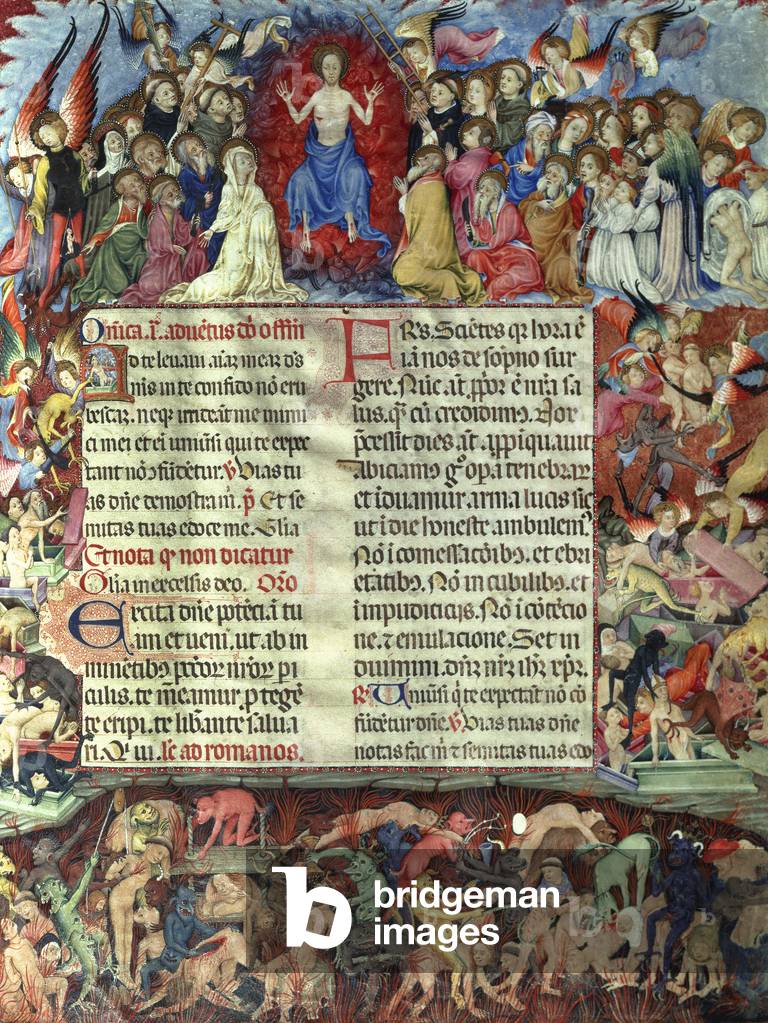 Dnica .i. aduētus dō offm
Ad te leuaui aiaz meaz ds
me
nis in te confido nō eru
bescaz. neqz irrideāt me inimi
ci mei et ei uniūsi qui te expe
tant nō cōfūdētur. v Vias tu
as dne demostra m. p Et se
mitas tuas edoce me. Glia
Et nota q non dicatur
Glia in excelsis deo. Oro
Excita dne potēciā tu
am et ueni. ut ab in
minētibo pctor nror pi
culis. te
te eripi. te libante salua
ri. Q ui. le ad romanos.
FRs. Sciētes qz hora ē
iā nos de sopno sur
gere. Nūc aūt ppor ē nrā sa
lus. qz cū credidimo. Nox
pcessit dies aūt appiquauit
Abiciamo go opa tenebraz
et iduamur arma lucis sic
ut i die honeste ambulem
Nō i comessacōibo. et ebri
etatibo. Nō in cubilibo. et
impudicicijs. Nō i cōtēcio
ne. z emulacione. Set in
duimini. dnz nrz ihz xpz.
R Uniūsi q te expectāt nō cō
fūdētur dne. v Vias tuas dne
notas fac m z semitas tuas edo
b
bridgeman
images